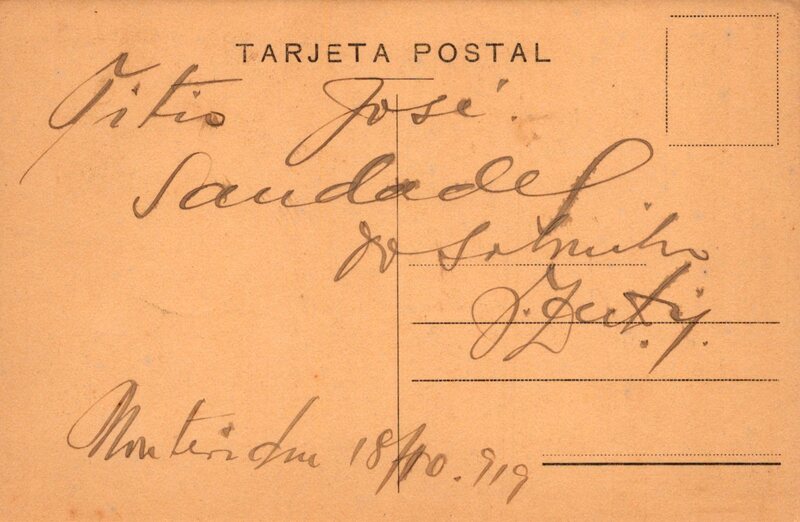 TARJETA POSTAL
Titio José.
Saudades
do Sobrinho
Montevideu 18/10.919